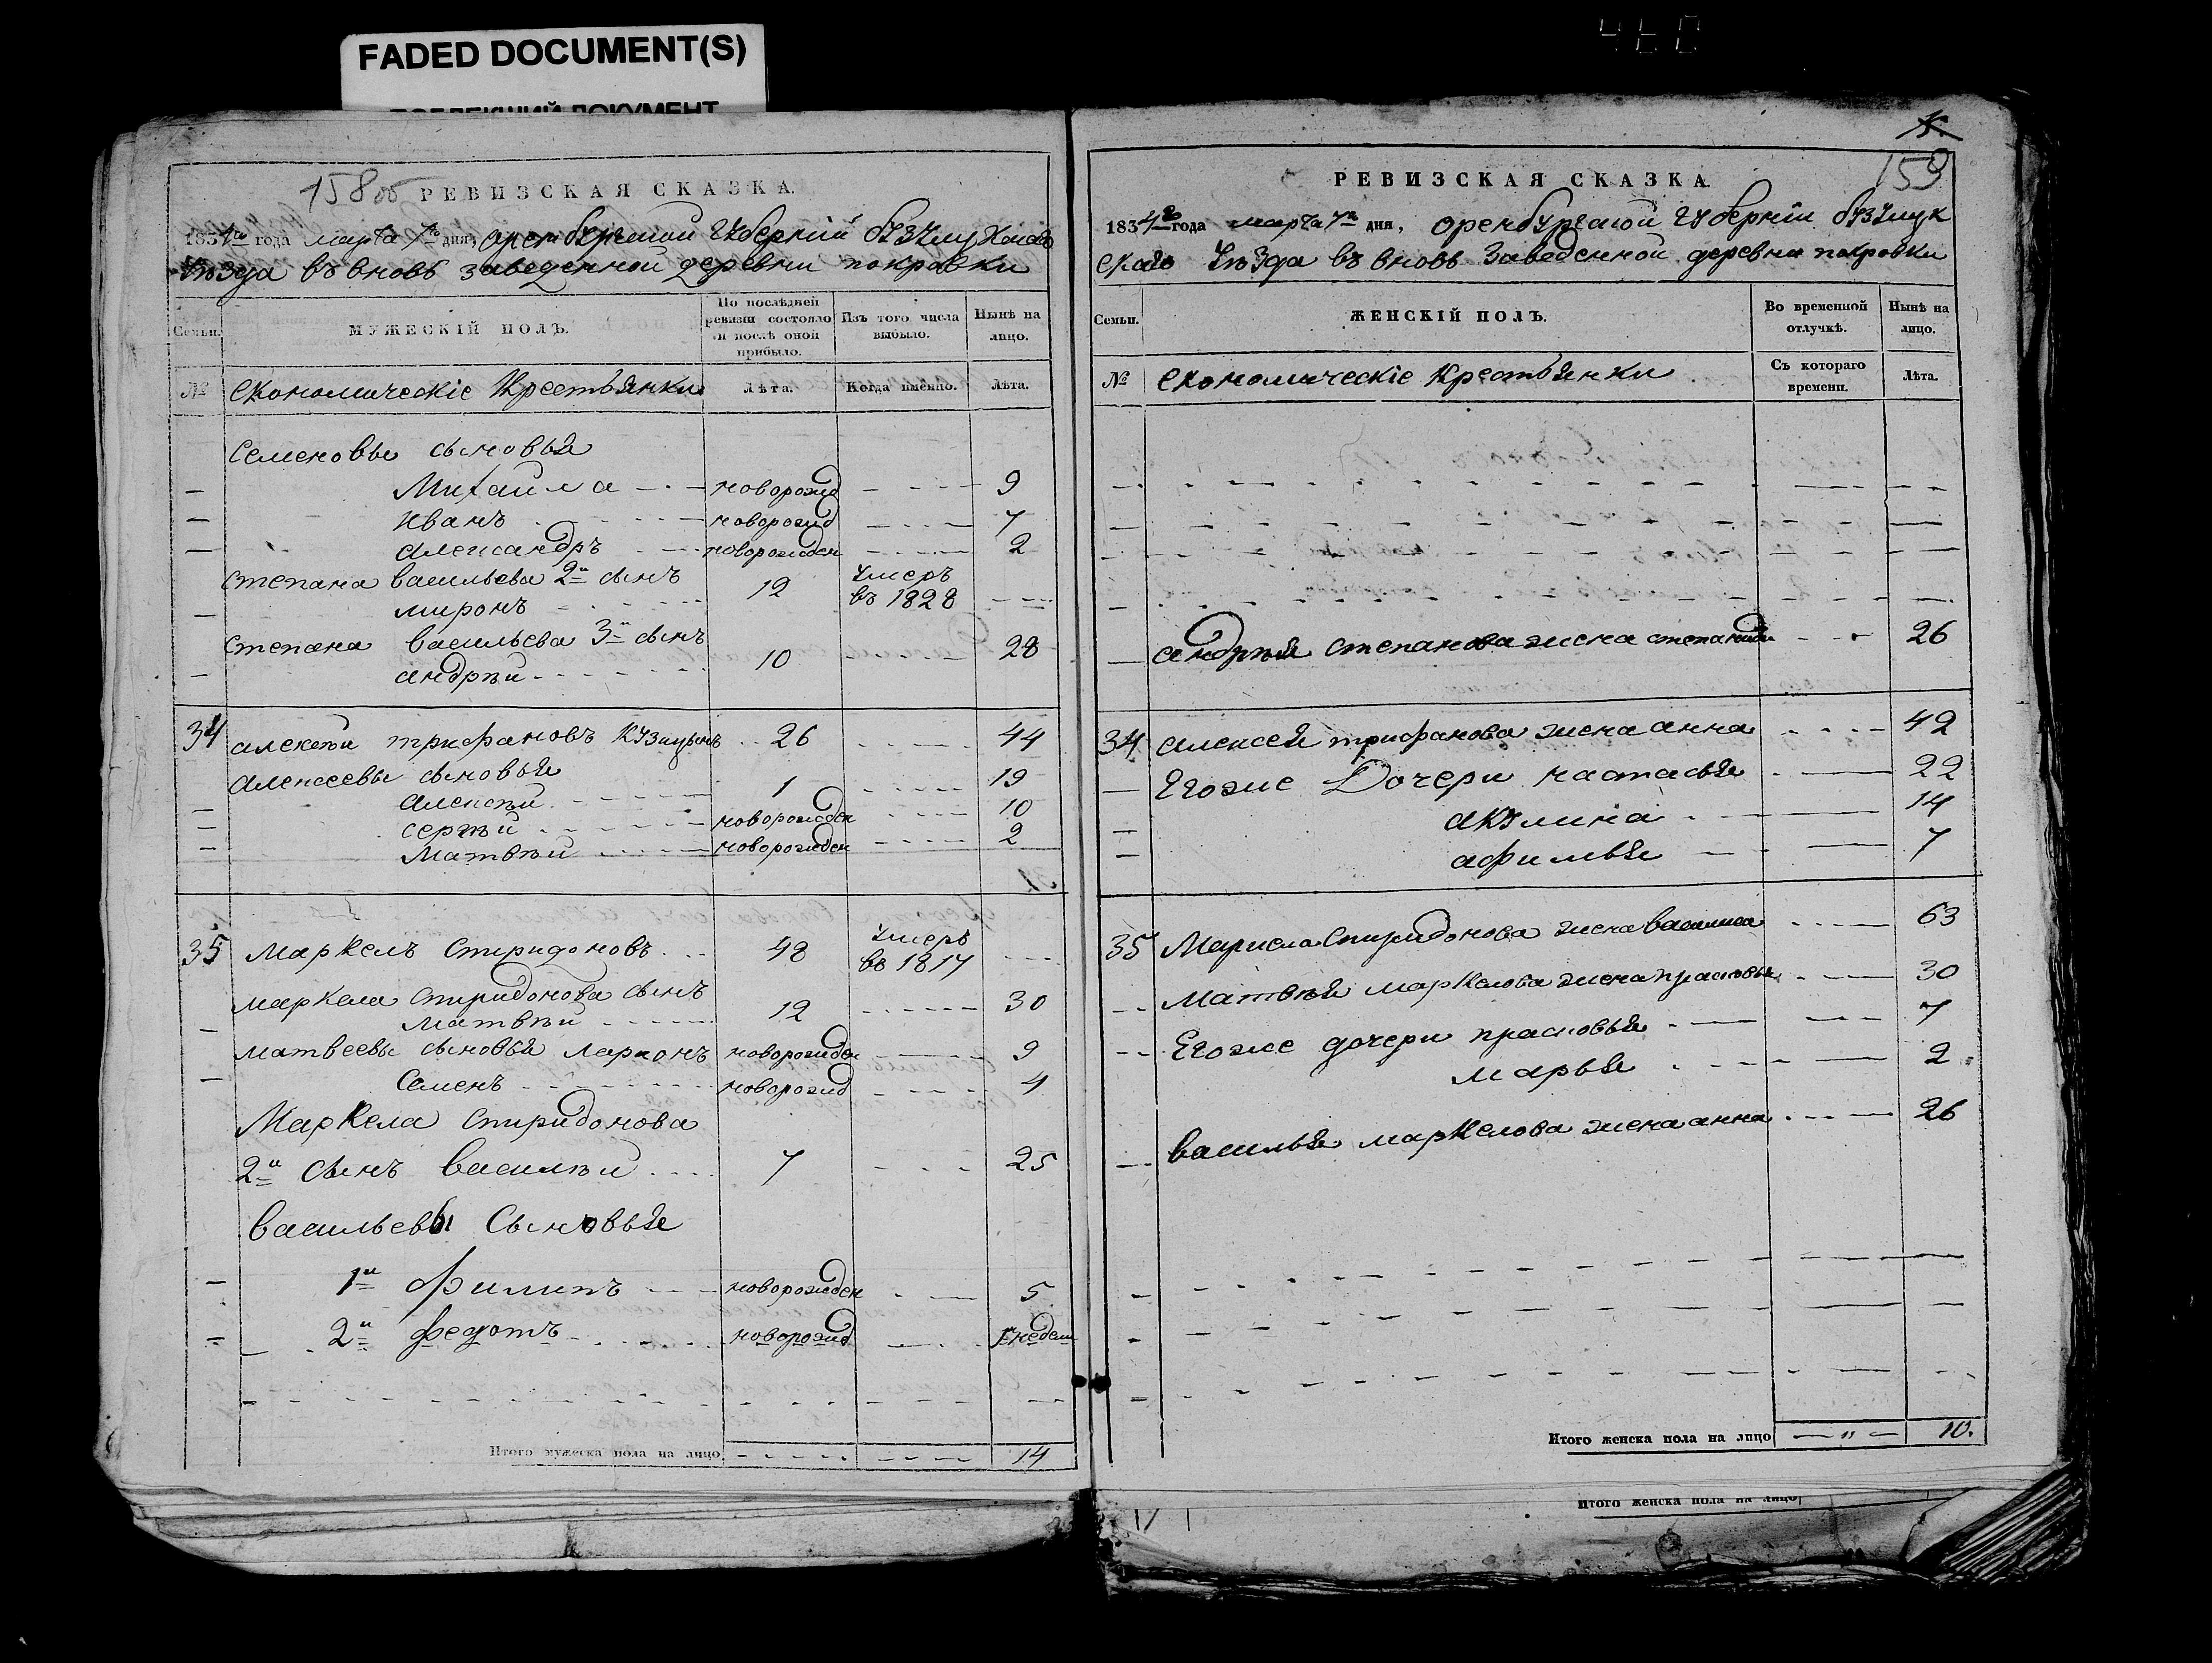 FADED DOCUMENT(S)
158 об
РЕВИЗСКАЯ СКАЗКА.
1834го года марта 7го дня, оренбургской губернии бузулукскаго
уѣзда въ вновь заведенной деревни покровки
Семьи.
МУЖЕСКІЙ ПОЛЪ.
По послѣдней ревизіи состояло и послѣ оной прибыло.
Изъ того числа выбыло.
Нынѣ на лицо.
№
Економическіе Крестьянки
Лѣта.
Когда именно.
Лѣта.
Семеновы сыновья
Михаила новорожд 9
Иванъ новорожд 7
александръ новорожден 2
Степана васильева 2й сынъ 12 умеръ
миронъ въ 1828
Степана васильева 3й сынъ
андрѣй 10 28
34 алексѣй трифановъ 26 44
Алексеевы сыновья
алексѣй 1 19
сергѣй новорожден 10
Матвѣй новорожден 2
35 Маркелъ Спиридоновъ 48 умеръ въ 1817
маркела Спиридонова сынъ
матвѣй 12 30
матвеевы сыновья ларионъ новорожден 9
Семенъ новорожд 4
Маркела Спиридонова
2й сынъ Василѣй 7 25
Васильевы Сыновья
1й Филипъ новорожден 5
2й федотъ новорожд недели
Итого мужеска пола на лицо 14
5.
159
РЕВИЗСКАЯ СКАЗКА.
1834го года марта 7го дня, оренбургской губерніи бузулук
скаго уѣзда въ вновь заведенной деревни покровки
Семьи.
ЖЕНСКІЙ ПОЛЪ.
Во временной отлучкѣ.
Нынѣ на лицо.
№
Економическіе Крестьянки
Съ котораго времени.
Лѣта.
андрѣя степанова жена степанида 26
34 алексея трифанова жена анна 42
Егоже Дочери настасья 22
акулина 14
афимья 7
35 Маркела Спиридонова жена василиса 63
матвѣя маркелова жена прасковья 30
Егоже дочери прасковья 7
марья 2
василья маркелова жена анна 26
Итого женска пола на лицо 10.
Итого женска пола на лицо